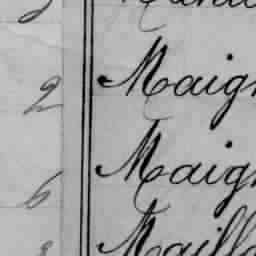 2 Maig
6 Maig
Maill